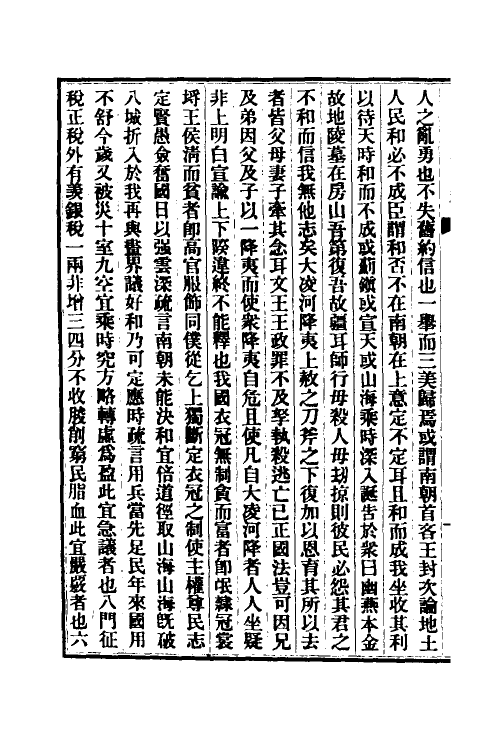 人之亂勇也不失舊約信也一舉而三美歸焉或謂南朝首吝王封次論地土
人民和必不成臣謂和否不在南朝在上意定不定耳且和而成我坐收其利
以待天時和而不成或薊鎭或宣大或山海乘時深入誕告於衆曰幽燕本金
故地陵墓在房山吾第復吾故疆耳師行毋殺人毋刦掠則彼民必怨其君之
不和而信我無他志矣大凌河降夷上赦之刀斧之下復加以恩育其所以去
者皆父母妻子牽其念耳文王王政罪不及孥執殺逃亡已正國法豈可因兄
及弟因父及子以一降夷而使衆降夷自危且使凡自大凌河降者人人坐疑
非上明白宣諭上下睽違終不能釋也我國衣冠無制貪而富者卽氓隸冠裳
埓王侯淸而貧者卽高官服飾同僕從乞上獨斷定衣冠之制使主權尊民志
定賢愚僉奮國日以强雲深疏言南朝未能決和宜倍道徑取山海山海旣破
八城折入於我再與畫界議好和乃可定應時疏言用兵當先足民年來國用
不舒今歲又被災十室九空宜乘時究方略轉虛爲盈此宜急議者也八門征
稅正稅外有羨銀稅一兩非增三四分不收朘削窮民脂血此宜嚴覈者也六